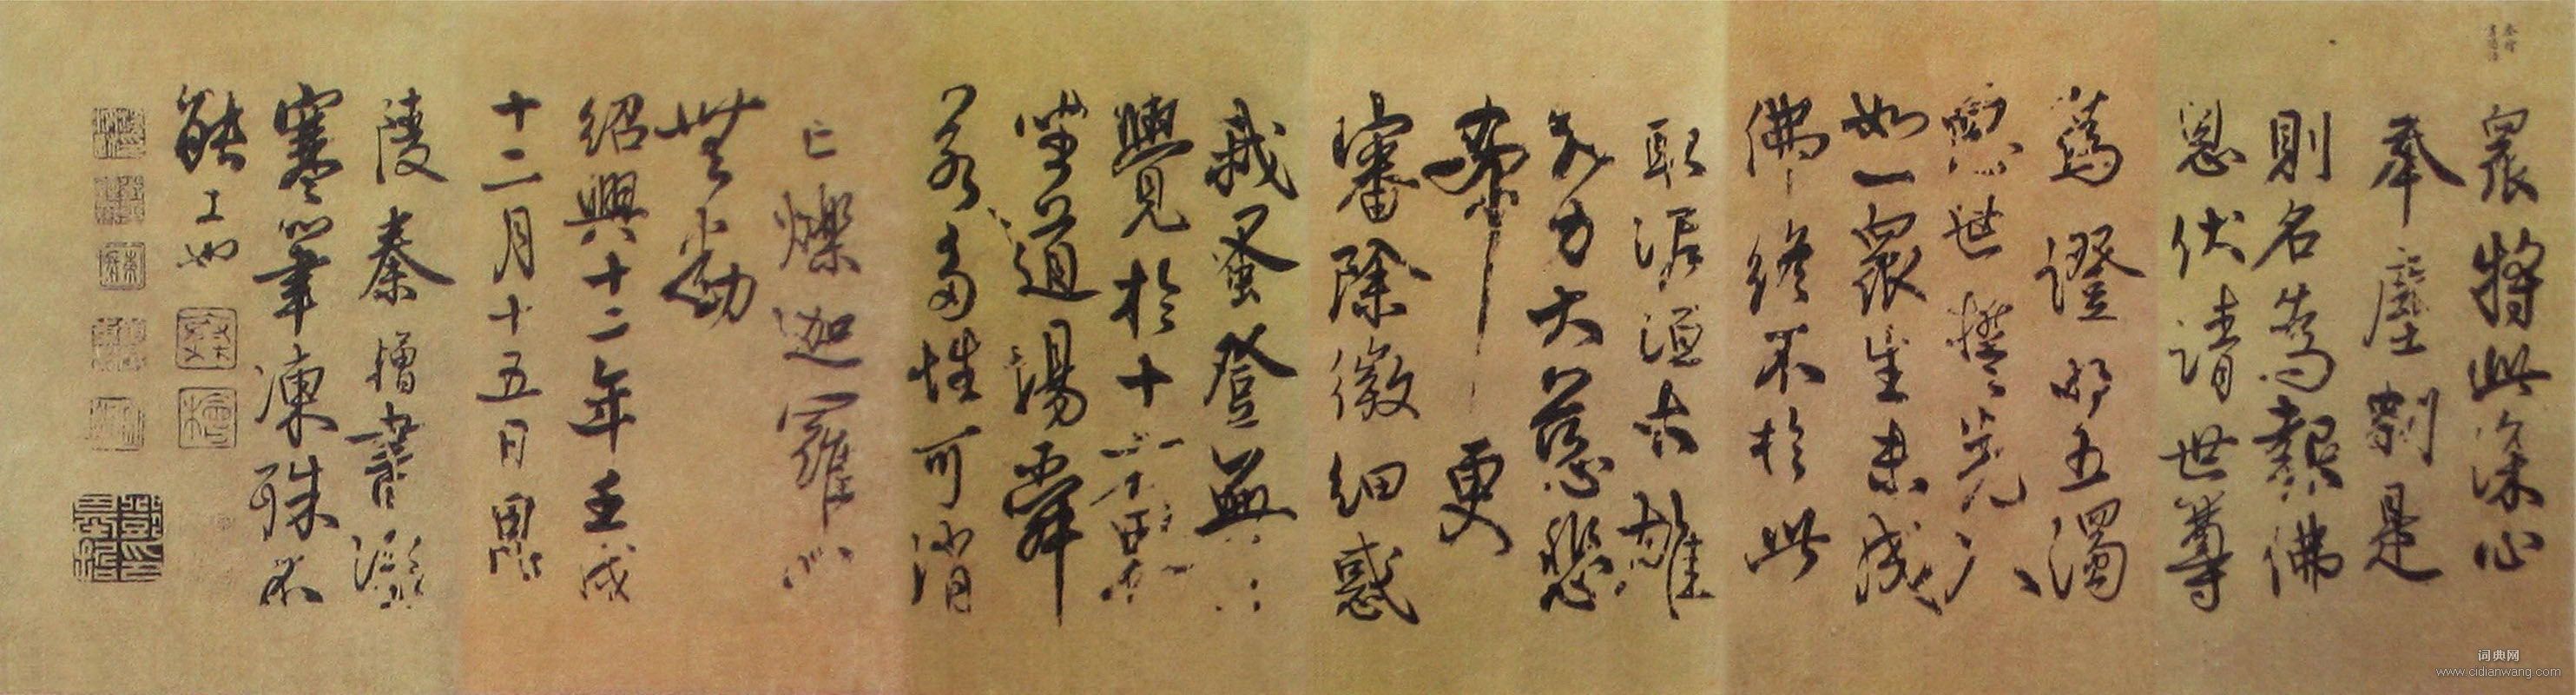 秦檜
眾將此深心
奉塵剎是
則名為報佛
恩伏請世尊
為證明五濁
惡世誓先入
如一眾生未成
佛終不於此
取泥洹大雄
大力大慈悲
希更
審除微細惑
我蚤登無上
覺於十方界
坐道場舜
若多性可消
亡爍迦羅心
無動
紹興十二年壬戌
十二月十五日
陵秦檜書
寒筆凍殊不
能工也
词典网
www.cidianwang.com